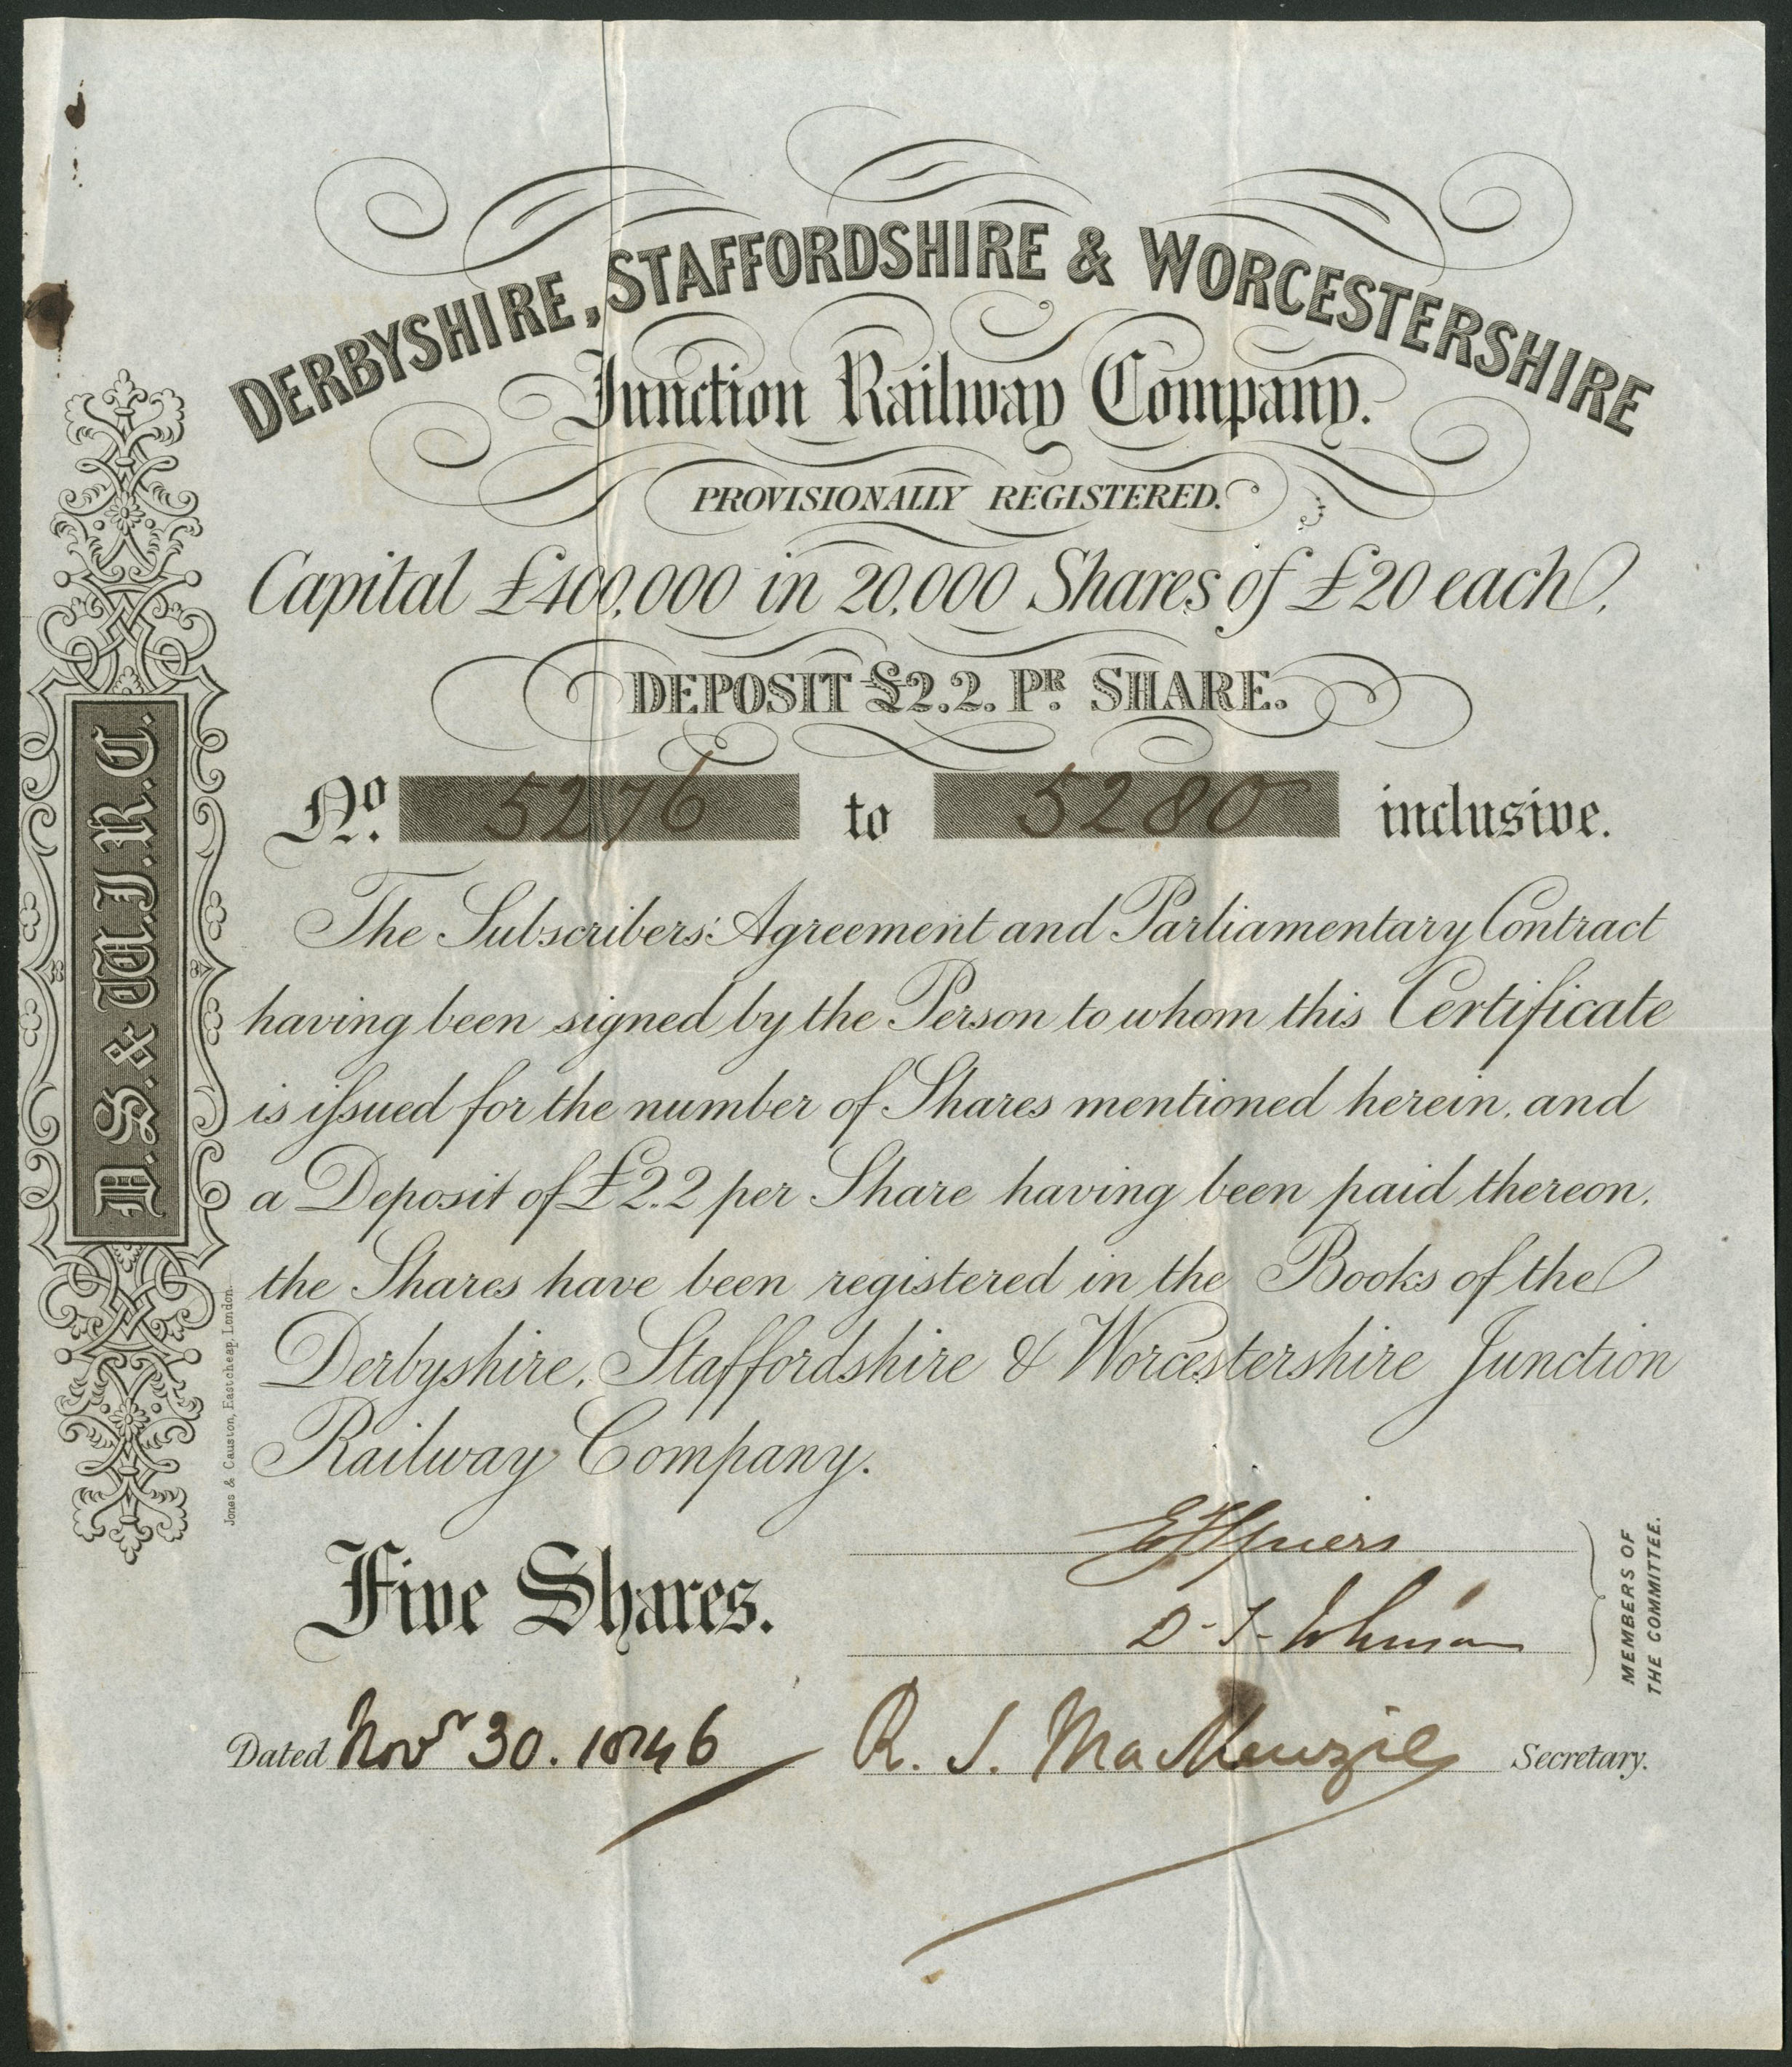 DERBYSHIRE, STAFFORDSHIRE & WORCESTERSHIRE
Junction Railway Company.
PROVISIONALLY REGISTERED.
Capital £400,000 in 20,000 Shares of £20 each.
DEPOSIT £2.2. Pr. SHARE.
No. 5276 to 5280 inclusive.
The Subscribers' Agreement and Parliamentary Contract
having been signed by the Person to whom this Certificate
is issued for the number of Shares mentioned herein, and
a Deposit of £2.2 per Share having been paid thereon,
the Shares have been registered in the Books of the
Derbyshire, Staffordshire & Worcestershire Junction
Railway Company.
Five Shares.
D. T. Johnson
MEMBERS OF
THE COMMITTEE.
Dated Novr 30. 1846
R. S. MacKenzie Secretary.
D. S. & W. J. R. C.
Jones & Causton, Eastcheap, London.